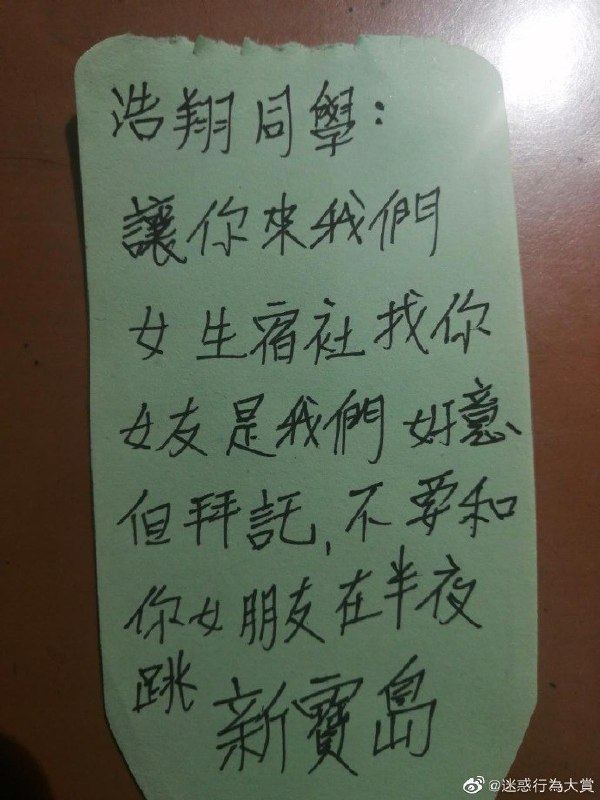 浩翔同學：
讓你來我們
女生宿社找你
女友是我們好意
但拜託,不要和
你女朋友在半夜
跳新寶島
@迷惑行為大賞